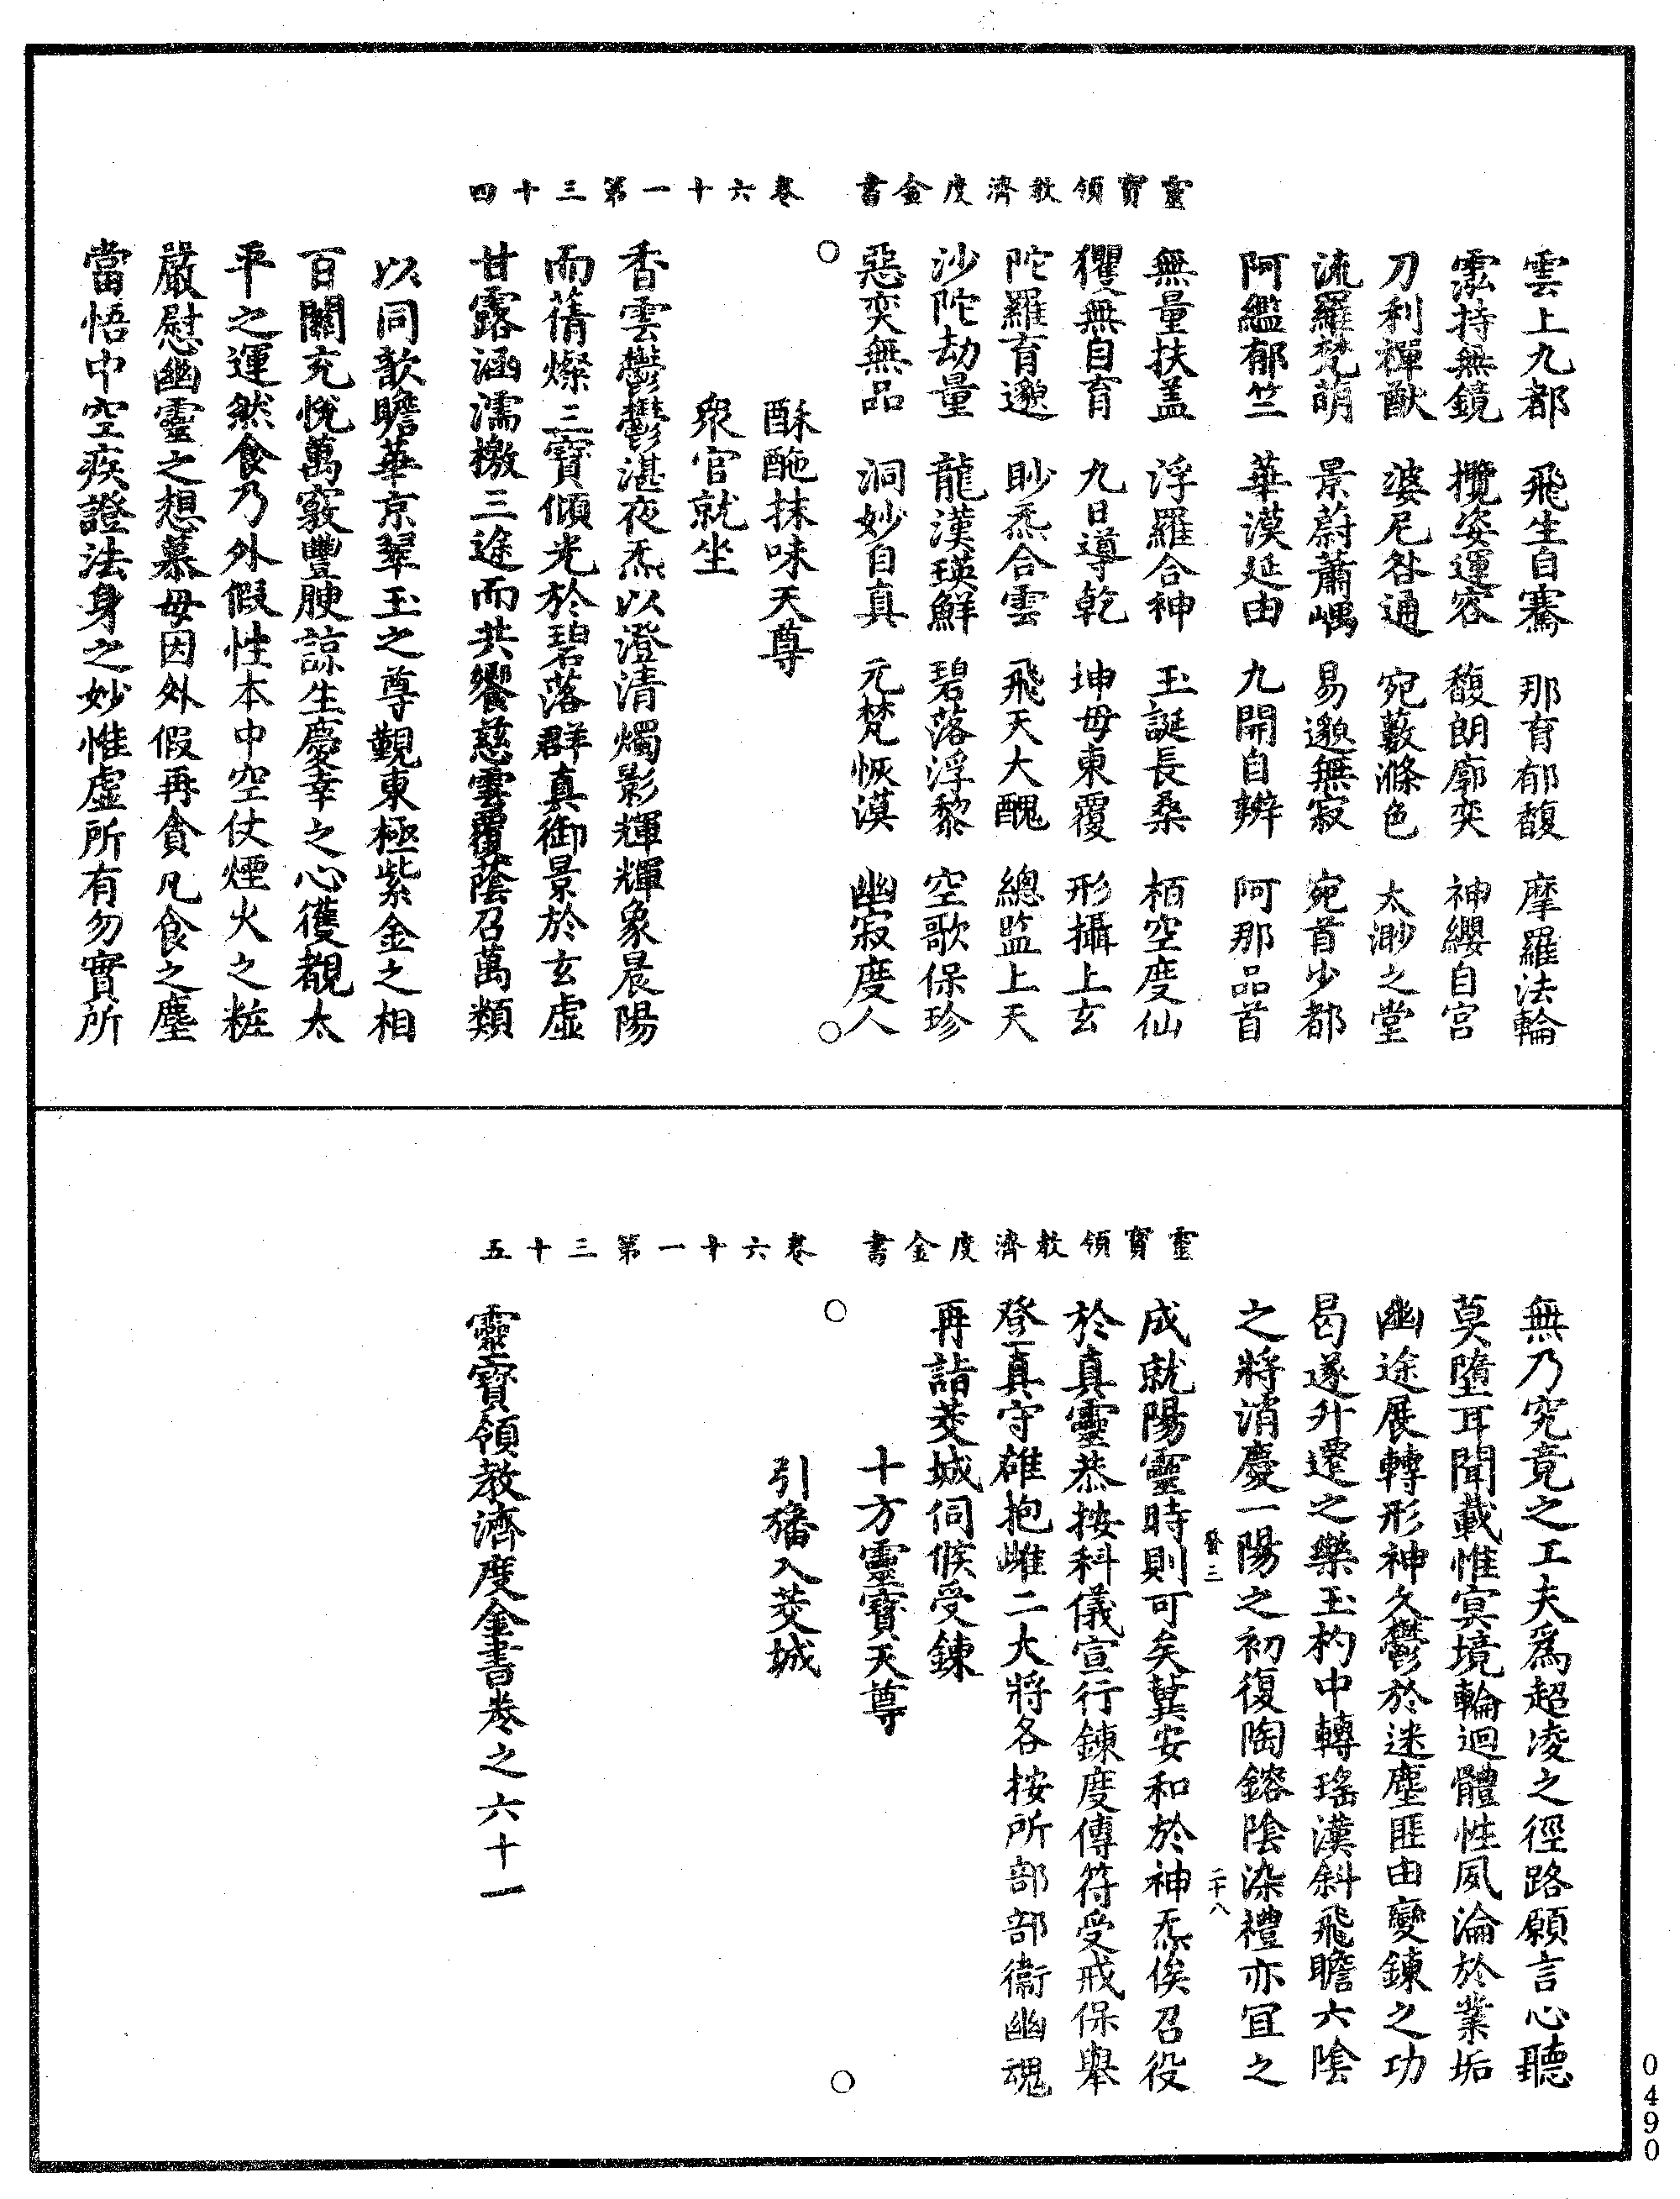 靈寶領教濟度金書　卷六十一第三十四
雲上九都　飛生自騫　那育郁馥　摩羅法輪
霐持無鏡　攬姿運容　馥朗廓奕　神纓自宮
刀利禪猷　婆尼咎通　宛藪滌色　太渺之堂
流羅梵萌　景蔚蕭嵎　易邈無寂　宛首少都
阿緼郁竺　華漠延由　九開自辯　阿那品首
無量扶蓋　浮羅合神　玉誕長桑　栢空度仙
玃無自育　九日導乾　坤母東覆　形攝上玄
陀羅育邈　眇炁合雲　飛天大醜　總監上天
沙陀劫量　龍漢瑛鮮　碧落浮黎　空歌保珍
惡奕無品　洞妙自真　元梵恢漠　幽寂度人
酥酏抹味天尊
衆官就坐
香雲鬱鬱湛夜炁以澄清燭影輝輝象晨陽
而蒨燦三寶傾光於碧落群真御景於玄虛
甘露涵濡檄三途而共饗慈雲覆蔭召萬類
以同歆瞻華京翠玉之尊觀東極紫金之相
百關充悅萬竅豐腴諒生慶幸之心獲覩太
平之運然食乃外假性本中空仗煙火之粧
嚴慰幽靈之想慕毋因外假再貪凡食之塵
當悟中空疾證法身之妙惟虛所有勿實所
靈寶領教濟度金書　卷六十一第三十五
無乃究竟之工夫爲超凌之徑路願言心聽
莫墮耳聞載惟冥境輪迴體性夙淪於業垢
幽途展轉形神久鬱於迷塵匪由變鍊之功
曷遂升遷之樂玉杓中轉瑤漢斜飛瞻六陰
之將消慶一陽之初復陶鎔陰染禮亦宜之
發三　二十八
成就陽靈時則可矣冀安和於神炁俟召役
於真靈恭按科儀宣行鍊度傳符受戒保舉
登真守雄抱雌二大將各按所部部衞幽魂
再詣茭城伺候受鍊
十方靈寶天尊
引旛入茭城
靈寶領教濟度金書卷之六十一
0490